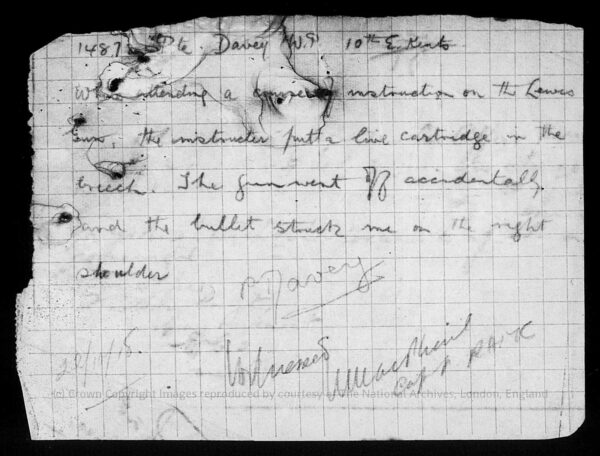 1487 Pte. Davey W.P. 10th E. Kents
When attending a course instruction on the Lewis
Gun, the instructor put a live cartridge in the
breech. The gun went off accidentally
and the bullet struck me on the right
shoulder
P Davey
Witnessed
Capt RAMC
(c) Crown Copyright Images reproduced by courtesy of The National Archives, London, England